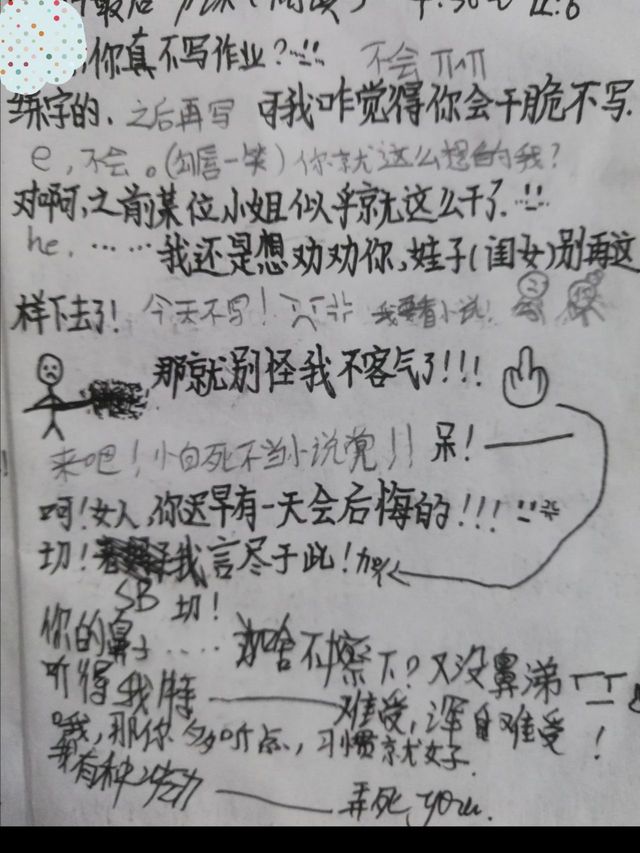 你真不写作业? 不会
练字的、之后再写 可我咋觉得你会干脆不写.
e,不会。(勾唇一笑)你就这么想的我?
对啊,之前某位小姐似乎就这么干了.
he. …… 我还是想劝劝你,娃子(闺女)别再这
样下去了! 今天不写! 我要看小说!
那就别怪我不客气了!!!
来吧!小白死不当小说党!! 呆!
呵!女人,你迟早有一天会后悔的!!!
切! 我言尽于此!
SB 切!
你的鼻子…… 为啥不擦下?又没鼻涕
听得我特 难受,浑身难受!
哦,那你多听点,习惯就好
我有种冲动 弄死 you.